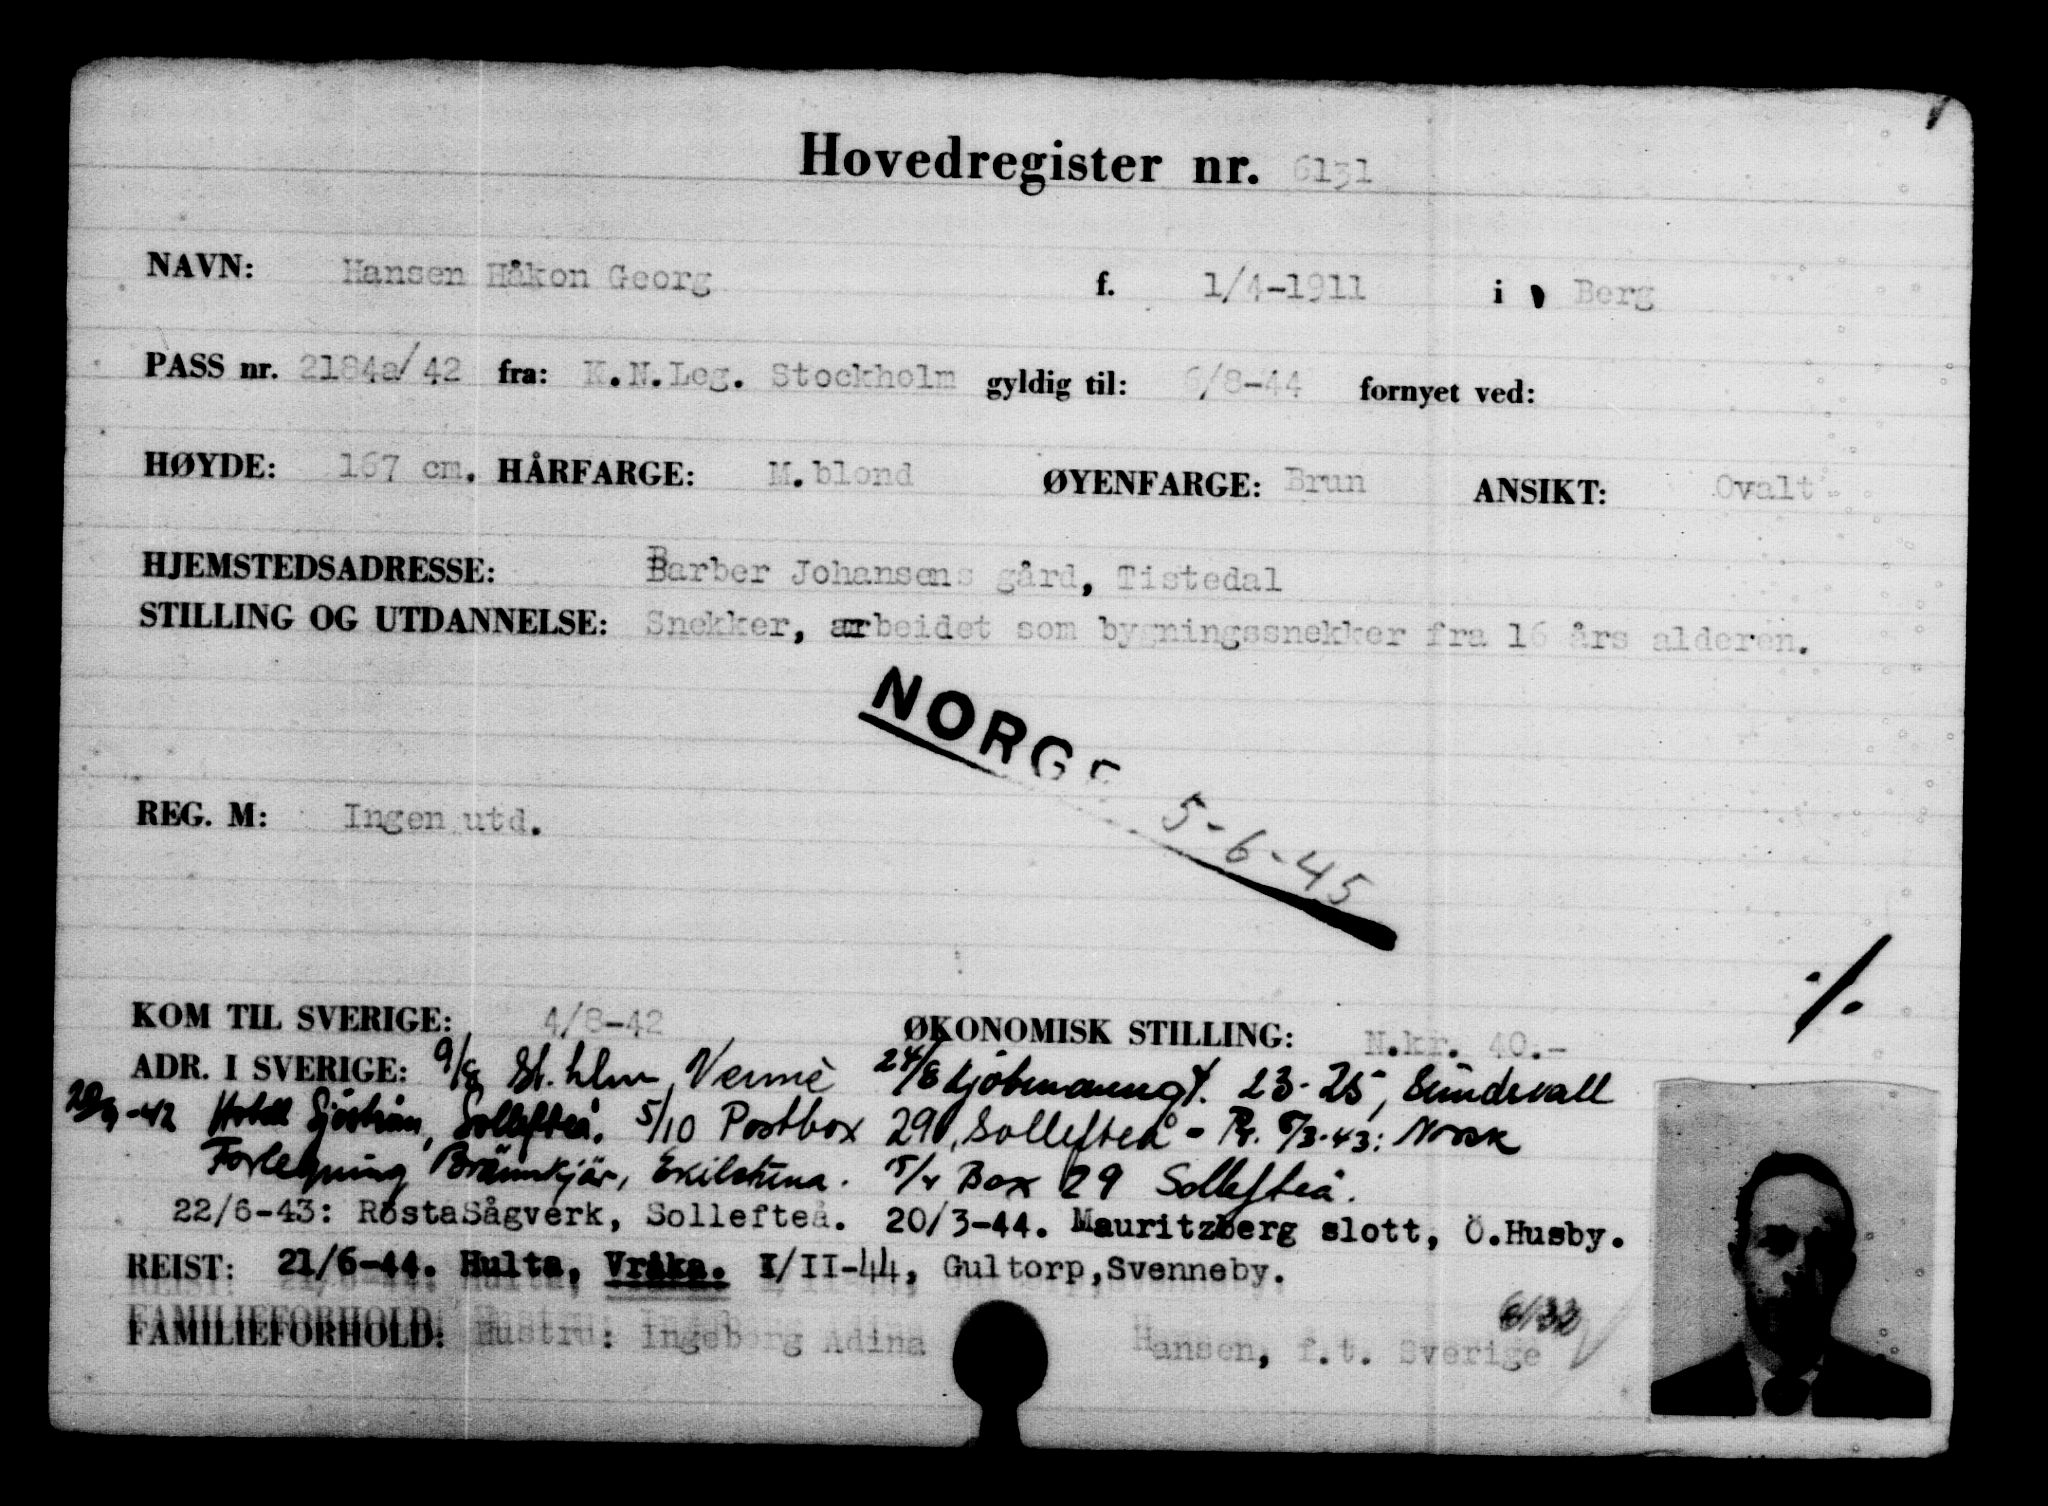 Hovedregister nr. 6131
NAVN: Hansen Håkon Georg f. 1/4-1911 i Berg
PASS nr. 2184a/42 fra: K.N.Leg. Stockholm gyldig til: 6/8-44 fornyet ved:
HØYDE: 167 cm. HÅRFARGE: M.blond ØYENFARGE: Brun ANSIKT: Ovalt
HJEMSTEDSADRESSE: Barber Johansens gård, Tistedal
STILLING OG UTDANNELSE: Snekker, arbeidet som bygningssnekker fra 16 års alderen.
NORGE 5-6-45
REG. M: Ingen utd.
·/·
KOM TIL SVERIGE: 4/8-42 ØKONOMISK STILLING: N.kr. 40.-
ADR. I SVERIGE: 9/8 St.hlm 24/8 Kjöbmannsgt. 23-25, Sundsvall
-42 Hotell Sjöström, Sollefteå. 5/10 Postbox 29, Sollefteå - Pr. 5/3-43: Norsk
Forlegning Brännkjär, Ekilstuna. 15/4 Box 29 Sollefteå.
22/6-43: RöstaSågverk, Sollefteå. 20/3-44. Mauritzberg slott, Ö.Husby.
REIST: 21/6-44. Hulta, Vråka. 1/11-44, Gultorp,Svenneby.
6132
FAMILIEFORHOLD: Hustru: Ingeborg Adina Hansen, f.t. Sverige